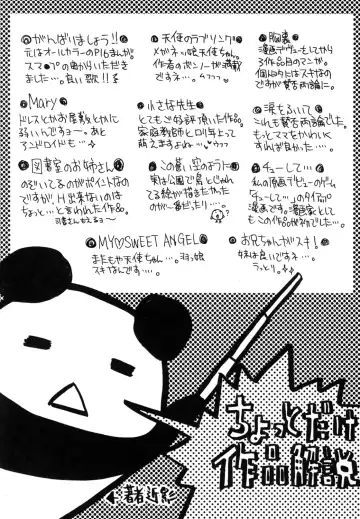 ちょっとだけ
作品解説
がんばりましょう!!
元はオールカラーのP16まんが。
スマ●プの曲からいただき
ました…。良い歌!!
Mary
ドレスとかお屋敷とかに
弱いんですよ~。あと
アンドロイドも…
図書室のお姉さん
のぞいてるのがポイントなの
ですが、H出来ないのは
ちょっと…と言われた作品。
天使のラブリング
メガネッ娘天使ちゃん。
作者のボンノーが満載
ですネ…。
小さな先生
とてもご好評頂いた作品。
家庭教師とロリ年上って
萌えますよね…
この蒼い空のように
実は公園で鳥とじゃれ
てる絵が描きたかった
のが一番だったり…
MY♡SWEET ANGEL
またもや天使ちゃん…。ヨヨッ娘
スキなんです…
胸裏
漫画デビューしてから
3作品目のマンガ
個人的にはスキなの
ですが、賛否両論に。
涙をふいて
これも賛否両論でした。
もっとママをかわいく
すれば良かった…。
チューして…
私の原画デビューのゲーム
「チューして…」のタイアップ
漫画です。漫画家としても
この作品が初でした…
お兄ちゃんがスキ!
妹は良いですネ…。
うっとり。
著者近影